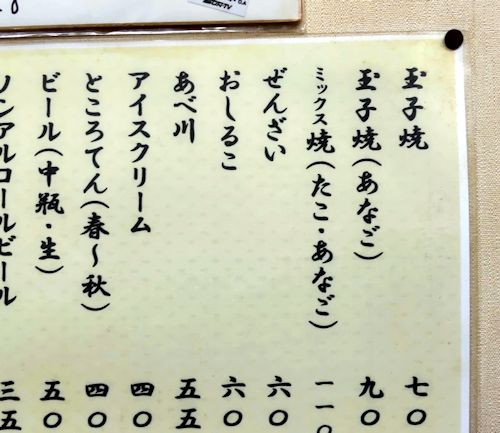 玉子焼 七〇
玉子焼(あなご) 九〇
ミックス焼(たこ・あなご) 一一〇
ぜんざい 六〇
おしるこ 六〇
あべ川 五五
アイスクリーム 四〇
ところてん(春〜秋) 四〇
ビール(中瓶・生) 五〇
ノンアルコールビール 三五